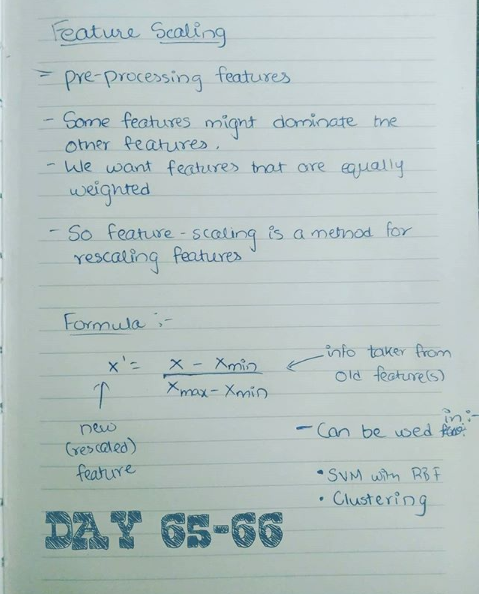 Feature Scaling
= pre-processing features
- Some features might dominate the
other features.
- We want features that are equally
weighted
- So feature-scaling is a method for
rescaling features
Formula :-
x' = x - xmin / xmax - xmin
info taken from
old feature(s)
new
(rescaled)
feature
- Can be used in:-
• SVM with RBF
• Clustering
DAY 65-66